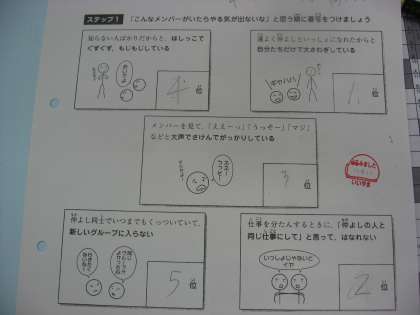 ステップ1 「こんなメンバーがいたらやる気が出ないな」と思う順に番号をつけましょう
知らない人ばかりだからと、はしっこで
ぐずぐず、もじもじしている
4
位
運よく仲よしといっしょになれたからと
自分たちだけで大さわぎしている
キャハハ
1
位
メンバーを見て、「ええーっ」「うっそー」「マジ」
などと大声でさけんでがっかりしている
3
位
仲よし同士でいつまでもくっついていて、
新しいグループに入らない
5
位
仕事を分たんするときに、「仲よしの人と
同じ仕事にして」と言って、はなれない
いっしょじゃないと
イヤ
2
位